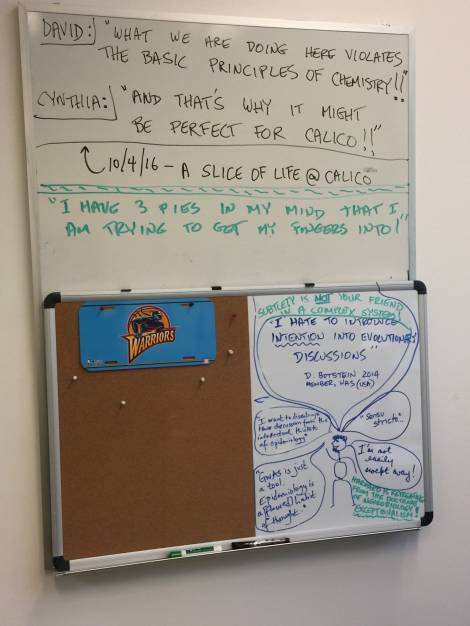 DAVID: "WHAT WE ARE DOING HERE VIOLATES
THE BASIC PRINCIPLES OF CHEMISTRY!!"
CYNTHIA: "AND THAT'S WHY IT MIGHT
BE PERFECT FOR CALICO!!"
10/4/16 - A SLICE OF LIFE @ CALICO
"I HAVE 3 PIES IN MY MIND THAT I
AM TRYING TO GET MY FINGERS INTO!"
WARRIORS
SUBTLETY IS NOT YOUR FRIEND
IN A COMPLEX SYSTEM!
"I HATE TO INTRODUCE
INTENTION INTO EVOLUTIONARY
DISCUSSIONS"
D. BOTSTEIN 2014
MEMBER, NAS (USA)
"I want to
discussion from the
intellectual
of epidemiology"
"Sensu
stricto..."
I'm not
easily
swept away!
"GWAS is just
a tool.
Epidemiology is
a flawed habit
of thought."
FROM THE DOCTRINE
OF
EXCEPTIONALISM!